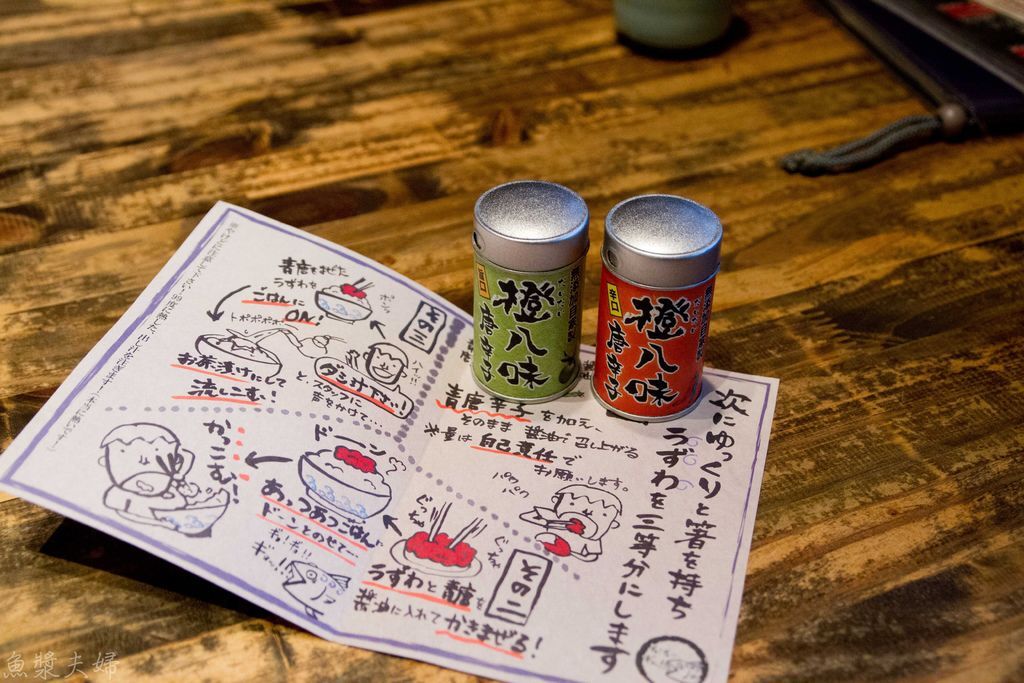 橙八味
唐辛子
辛口
橙八味
唐辛子
次にゆっくりと箸を持ち
うずわを三等分にします
青唐辛子を加え、
そのまま醤油で召し上がる
※量は自己責任で
お願いします。
パク
パク
その二
ぐっちゃ
ぐっちゃ
うずわと青唐を
醤油に入れてかきまぜる!
ドーン
あっつあつごはんに
ドーンとのせて…
ギョギョ!!
かっこむ!
その三
青唐をまぜた
うずわを
ごはんに
ON!
ポンッ
トポポポポ
ダシ汁下さい!
と、スタッフに
声をかけて…
お茶漬けにして
流しこむ!
魚漿夫婦